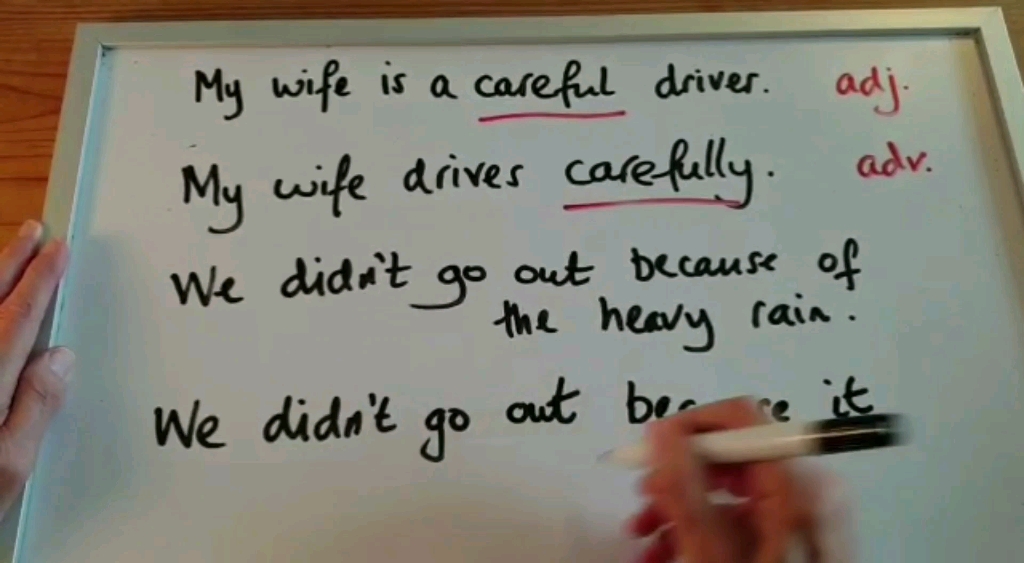 My wife is a careful driver. adj.
My wife drives carefully. adv.
We didn't go out because of
the heavy rain.
We didn't go out because it